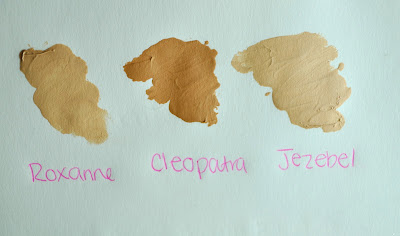 Roxanne Cleopatra Jezebel